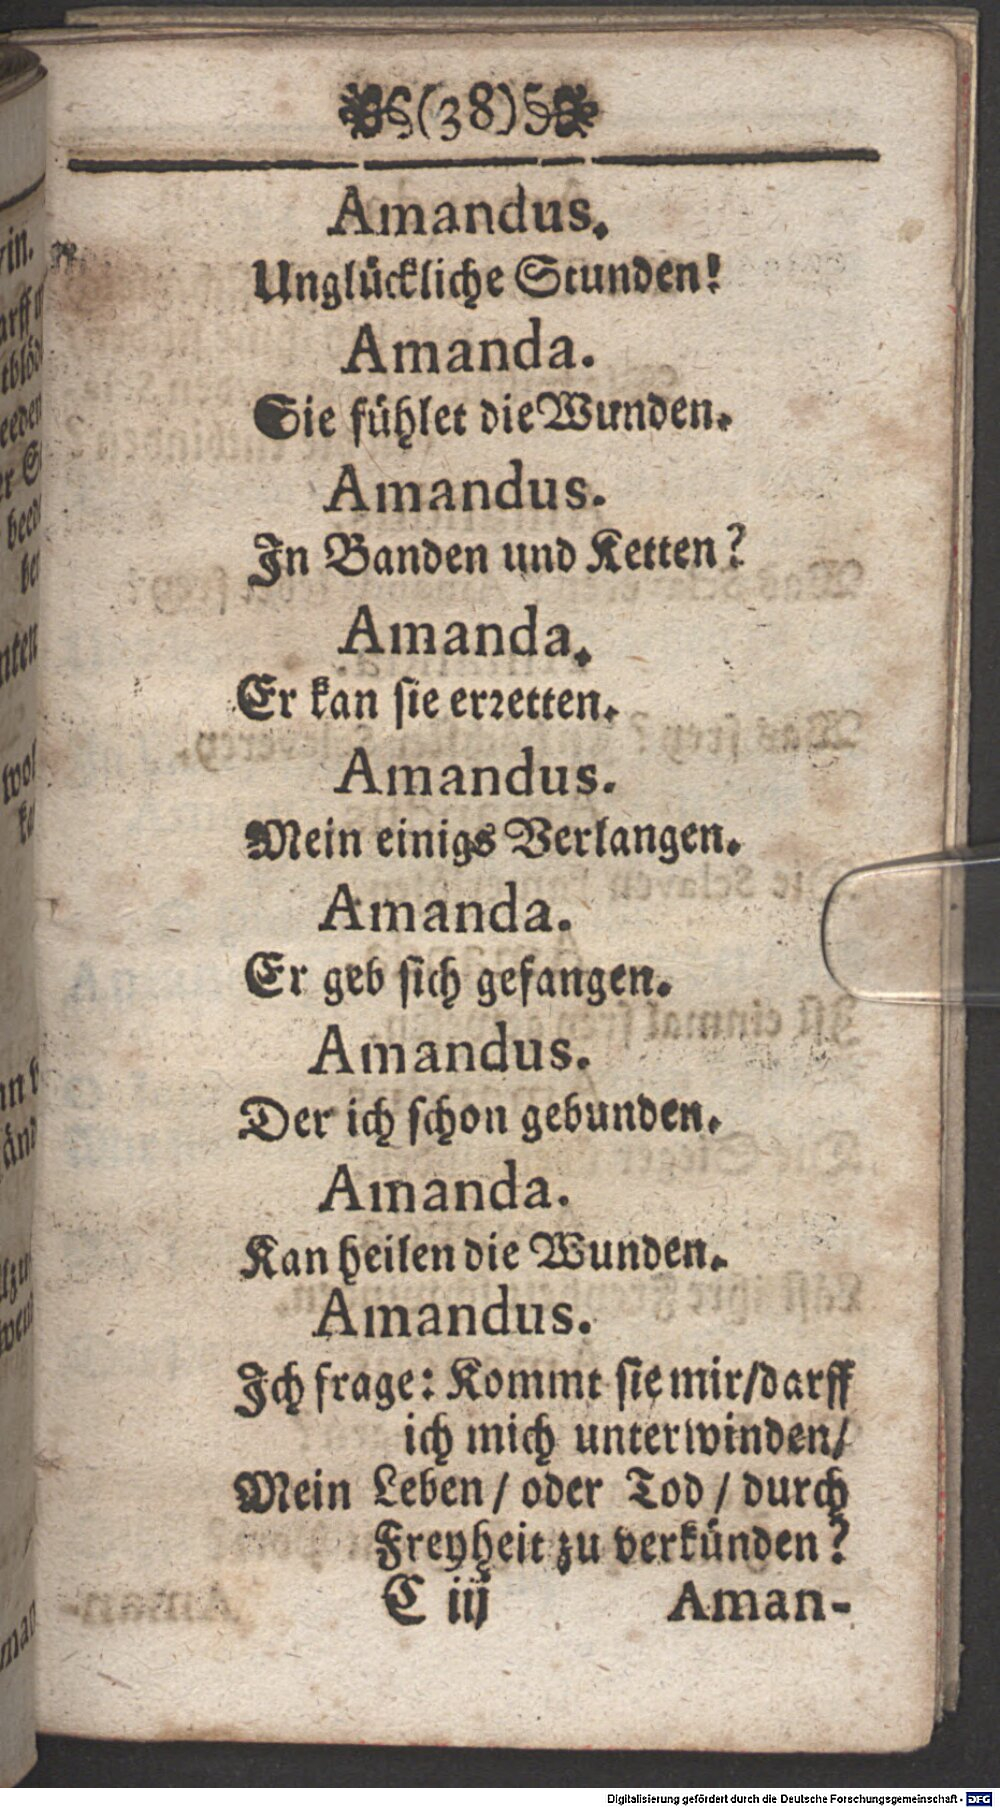 (38)
Amandus.
Unglückliche Stunden!
Amanda.
Sie fühlet die Wunden.
Amandus.
In Banden und Ketten?
Amanda.
Er kan sie erꝛetten.
Amandus.
Mein einigs Verlangen.
Amanda.
Er geb sich gefangen.
Amandus.
Der ich schon gebunden.
Amanda.
Kan heilen die Wunden.
Amandus.
Ich frage: Kommt sie mir/darff
ich mich unterwinden/
Mein Leben / oder Tod / durch
Freyheit zu verkünden?
C iij Aman-
Digitalisierung gefördert durch die Deutsche Forschungsgemeinschaft - DFG